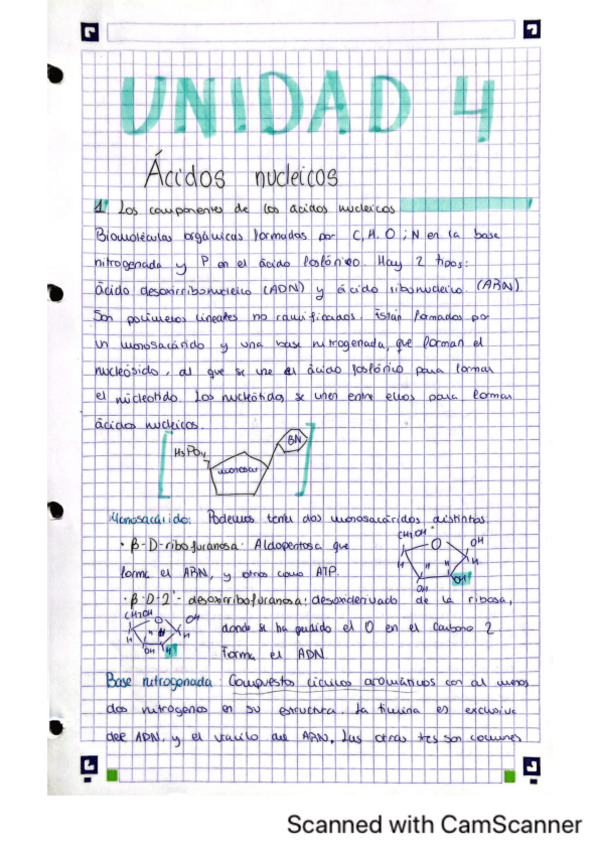 UNIDAD 4
Ácidos nucleicos
1. Los componentes de los ácidos nucleicos
Biomoléculas orgánicas formadas por C, H, O; N en la base
nitrogenada y P en el ácido fosfórico. Hay 2 tipos:
ácido desoxirribonucleico (ADN) y ácido ribonucleico. (ARN)
Son polímeros lineales no ramificados. Están formados por
un monosacárido y una base nitrogenada, que forman el
nucleósido, al que se une el ácido fosfórico para formar
el nucleótido. Los nucleótidos se unen entre ellos para formar
ácidos nucleicos.
H3PO4
monosac
BN
Monosacárido: Podemos tener dos monosacáridos distintos
· β-D-ribofuranosa: Aldopentosa que
forma el ARN, y otros como ATP.
CH2OH
O
OH
H
H
H
H
OH
OH
· β-D-2'-desoxirribofuranosa: desoxiderivado de la ribosa,
donde se ha perdido el O en el carbono 2
Forma el ADN
CH2OH
O
OH
H
H
H
H
OH
H
Base nitrogenada: Compuestos cíclicos aromáticos con al menos
dos nitrógenos en su estructura. La timina es exclusiva
del ADN, y el uracilo del ARN, Las otras tres son comunes
Scanned with CamScanner